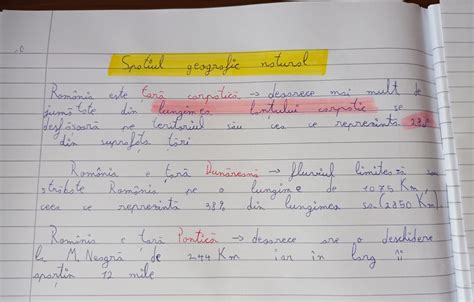 Spațiul geografic natural
România este țară carpatică → deoarece mai mult de
jumătate din lungimea lanțului carpatic se
desfășoară pe teritoriul său ceea ce reprezintă 28%
din suprafața țării
România e țară Dunăreană → fluviul limitează sau
străbate România pe o lungime de 1075 Km,
ceea ce reprezintă 38% din lungimea sa (2850 Km).
România e țară Pontică → deoarece are o deschidere
la M. Neagră de 244 Km iar în larg îi
aparțin 12 mile